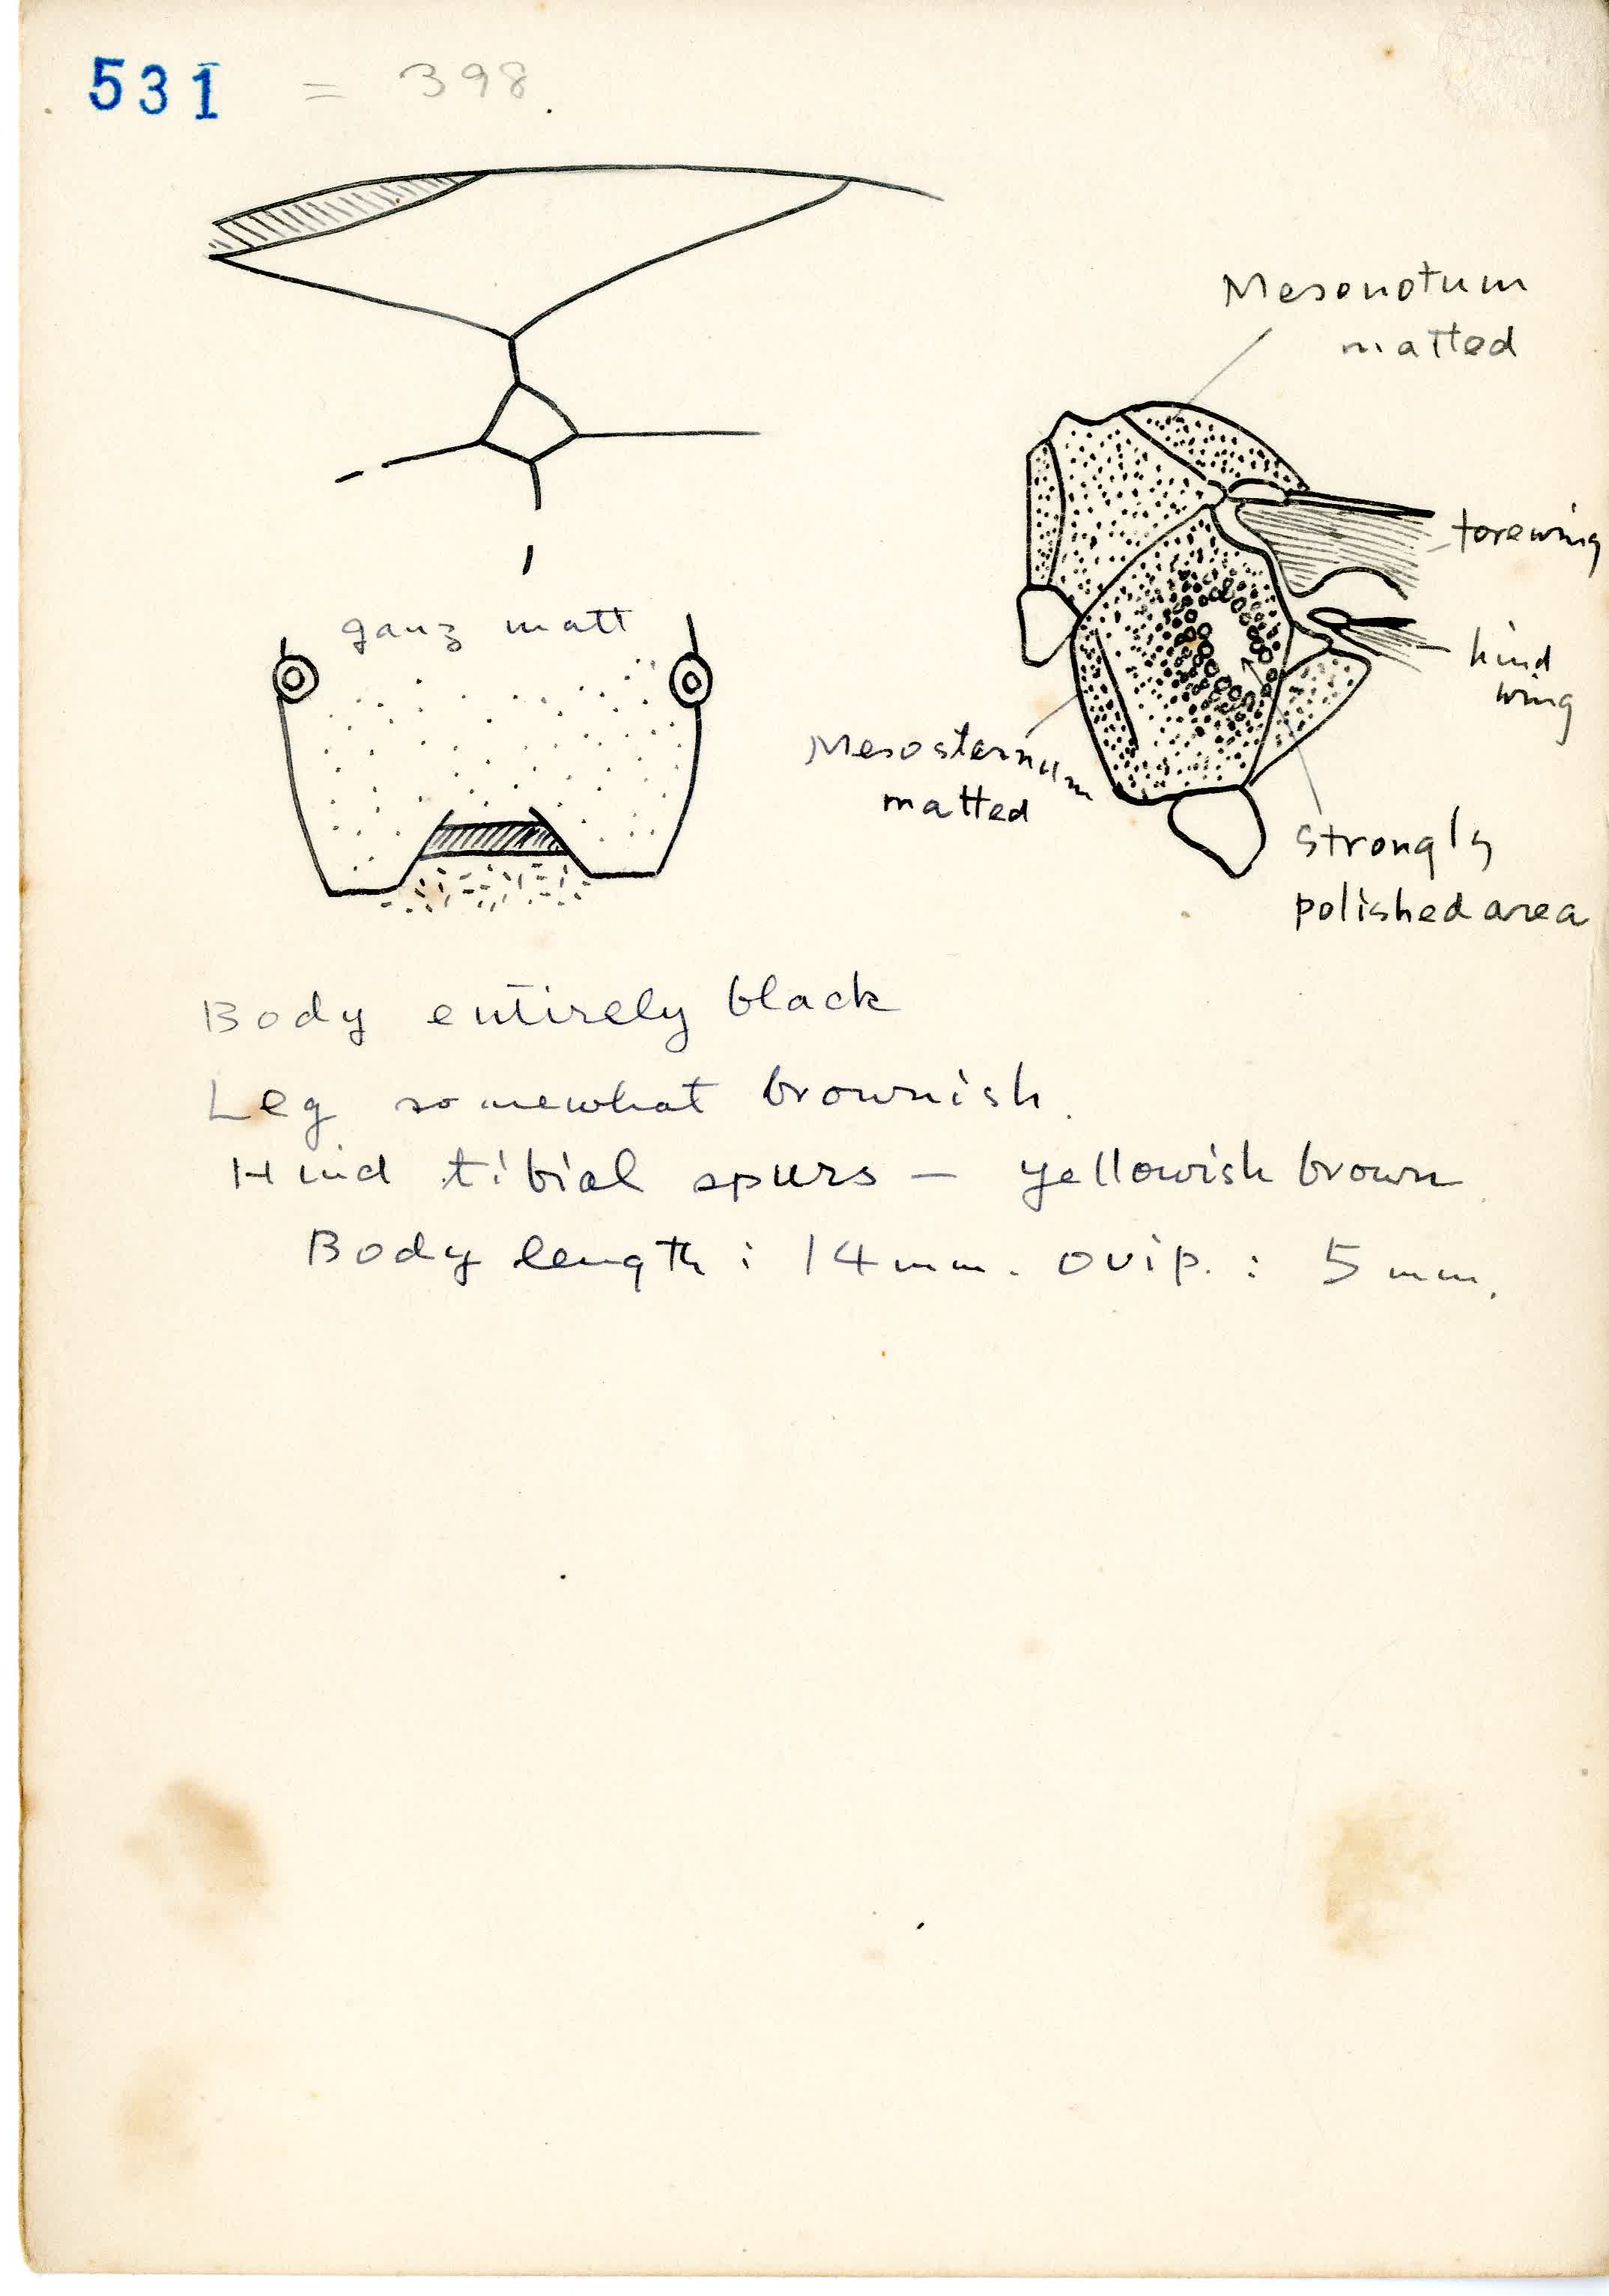 531 = 398.
Mesonotum
matted
forewing
hind
wing
ganz matt
Mesosternum
matted
strongly
polished area
Body entirely black
Leg somewhat brownish.
Hind tibial spurs – yellowish brown.
Body length : 14 mm. ovip. : 5 mm.